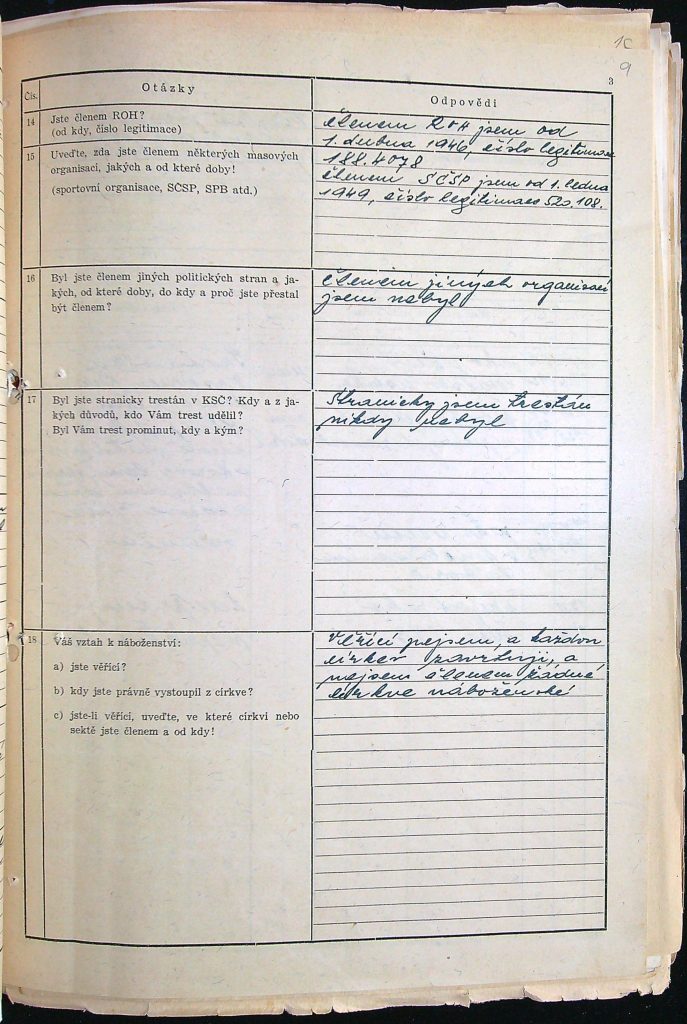 10
9
3
Čís.
Otázky
Odpovědi
14
Jste členem ROH?
(od kdy, číslo legitimace)
členem ROH jsem od
1. dubna 1946, číslo legitimace
188.4078
15
Uveďte, zda jste členem některých masových
organisací, jakých a od které doby!
(sportovní organisace, SČSP, SPB atd.)
členem SČSP jsem od 1. ledna
1949, číslo legitimace 520.108.
16
Byl jste členem jiných politických stran a ja-
kých, od které doby, do kdy a proč jste přestal
být členem?
členem jiných organisací
jsem nebyl
17
Byl jste stranicky trestán v KSČ? Kdy a z ja-
kých důvodů, kdo Vám trest udělil?
Byl Vám trest prominut, kdy a kým?
Stranicky jsem trestán
nikdy nebyl
18
Váš vztah k náboženství:
a) jste věřící?
b) kdy jste právně vystoupil z církve?
c) jste-li věřící, uveďte, ve které církvi nebo
sektě jste členem a od kdy!
Věřící nejsem, a každou
církev zavrhuji, a
nejsem členem žádné
církve náboženské